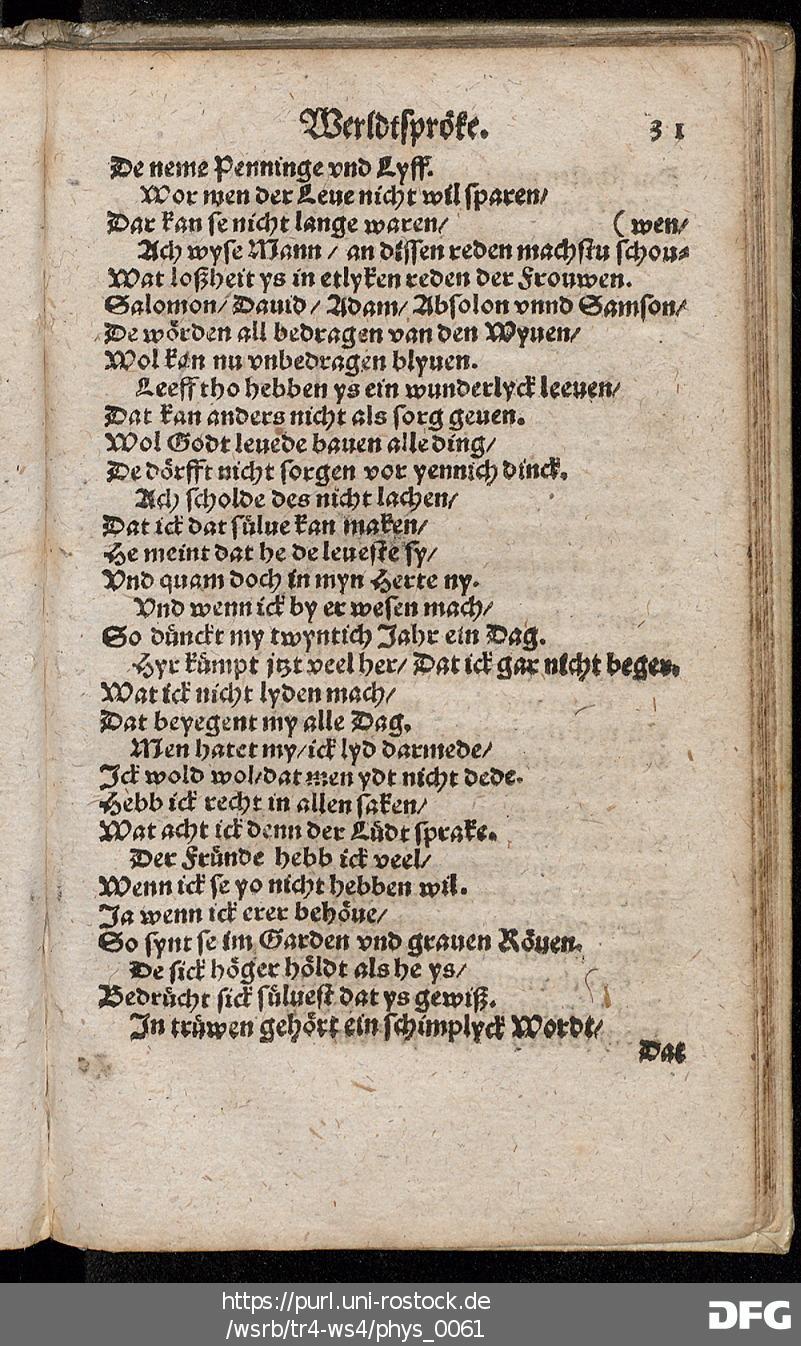 Werldtspröke. 31
De neme Penninge vnd Lyff.
Wor men der Leue nicht wil sparen/
Dar kan se nicht lange waren/ (wen/
Ach wyse Mann / an dissen reden machstu schou-
Wat loßheit ys in etlyken reden der Frouwen.
Salomon/ Dauid/ Adam/ Absolon vnnd Samson/
De wörden all bedragen van den Wyuen/
Wol kan nu vnbedragen blyuen.
Leeff tho hebben ys ein wunderlyck leeuen/
Dat kan anders nicht als sorg geuen.
Wol Godt leuede bauen alle ding/
De dörfft nicht sorgen vor yennich dinck.
Ach scholde des nicht lachen/
Dat ick dat sülue kan maken/
He meint dat he de leueste sy/
Vnd quam doch in myn Herte ny.
Vnd wenn ick by er wesen mach/
So dünckt my twyntich Jahr ein Dag.
Hyr kümpt jtzt veel her/ Dat ick gar nicht beger.
Wat ick nicht lyden mach/
Dat beyegent my alle Dag.
Men hatet my/ ick lyd darmede/
Ick wold wol/ dat men ydt nicht dede.
Hebb ick recht in allen saken/
Wat acht ick denn der Lüdt sprake.
Der Fründe hebb ick veel/
Wenn ick se yo nicht hebben wil.
Ja wenn ick erer behöue/
So synt se im Garden vnd grauen Röuen.
De sick höger höldt als he ys/
Bedrücht sick süluest dat ys gewiß.
In trüwen gehört ein schimplyck Wordt/
Dat
https://purl.uni-rostock.de
/wsrb/tr4-ws4/phys_0061
DFG